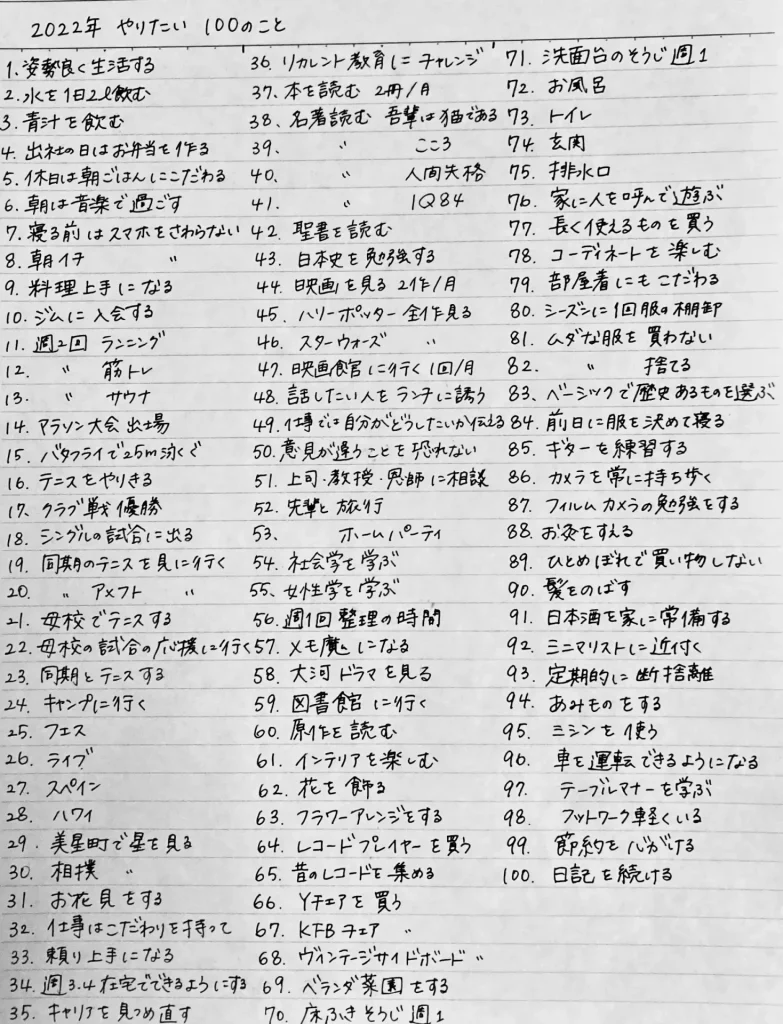 2022年 やりたい 100のこと
1. 姿勢良く生活する
2. 水を1日2ℓ飲む
3. 青汁を飲む
4. 出社の日はお弁当を作る
5. 休日は朝ごはんにこだわる
6. 朝は音楽で過ごす
7. 寝る前はスマホをさわらない
8. 朝イチ 〃
9. 料理上手になる
10. ジムに入会する
11. 週2回 ランニング
12. 〃 筋トレ
13. 〃 サウナ
14. マラソン大会出場
15. バタフライで25m泳ぐ
16. テニスをやりきる
17. クラブ戦優勝
18. シングルの試合に出る
19. 同期のテニスを見に行く
20. 〃 アメフト 〃
21. 母校でテニスする
22. 母校の試合の応援に行く
23. 同期とテニスする
24. キャンプに行く
25. フェス
26. ライブ
27. スペイン
28. ハワイ
29. 美星町で星を見る
30. 相撲 〃
31. お花見をする
32. 仕事はこだわりを持って
33. 頼り上手になる
34. 週3.4在宅でできるようにする
35. キャリアを見つめ直す
36. リカレント教育にチャレンジ
37. 本を読む 2冊/月
38. 名著読む 吾輩は猫である
39. 〃 こころ
40. 〃 人間失格
41. 〃 1Q84
42. 聖書を読む
43. 日本史を勉強する
44. 映画を見る 2作/月
45. ハリーポッター 全作見る
46. スターウォーズ 〃
47. 映画館に行く 1回/月
48. 話したい人をランチに誘う
49. 仕事では自分がどうしたいか伝える
50. 意見が違うことを恐れない
51. 上司・教授・恩師に相談
52. 先輩と旅行
53. ホームパーティ
54. 社会学を学ぶ
55. 女性学を学ぶ
56. 週1回 整理の時間
57. メモ魔になる
58. 大河ドラマを見る
59. 図書館に行く
60. 原作を読む
61. インテリアを楽しむ
62. 花を飾る
63. フラワーアレンジをする
64. レコードプレイヤーを買う
65. 昔のレコードを集める
66. Yチェアを買う
67. KFBチェア 〃
68. ヴィンテージサイドボード 〃
69. ベランダ菜園をする
70. 床ふきそうじ 週1
71. 洗面台のそうじ 週1
72. お風呂
73. トイレ
74. 玄関
75. 排水口
76. 家に人を呼んで遊ぶ
77. 長く使えるものを買う
78. コーディネートを楽しむ
79. 部屋着にもこだわる
80. シーズンに1回服の棚卸
81. ムダな服を買わない
82. 〃 捨てる
83. ベーシックで歴史あるものを選ぶ
84. 前日に服を決めて寝る
85. ギターを練習する
86. カメラを常に持ち歩く
87. フィルムカメラの勉強をする
88. お灸をすえる
89. ひとめぼれで買い物しない
90. 髪をのばす
91. 日本酒を家に常備する
92. ミニマリストに近付く
93. 定期的に断捨離
94. あみものをする
95. ミシンを使う
96. 車を運転できるようになる
97. テーブルマナーを学ぶ
98. フットワーク軽くいる
99. 節約を心がける
100. 日記を続ける